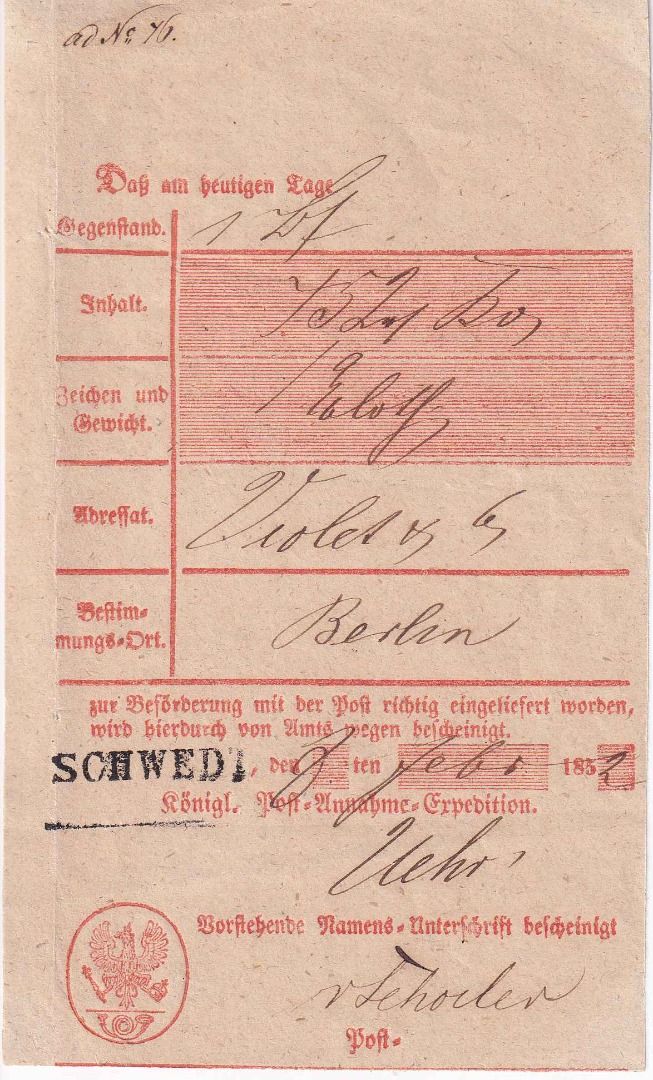 ad No 76.
Daß am heutigen Tage
Gegenstand. 1 Bf
Inhalt.
Zeichen und
Gewicht.
Adressat. Violet & C
Bestim-
mungs-Ort. Berlin
zur Beförderung mit der Post richtig eingeliefert worden,
wird hierdurch von Amts wegen bescheinigt.
SCHWEDT, den 9 ten Febr 1852
Königl. Post-Annahme-Expedition.
Vorstehende Namens-Unterschrift bescheinigt
Post-